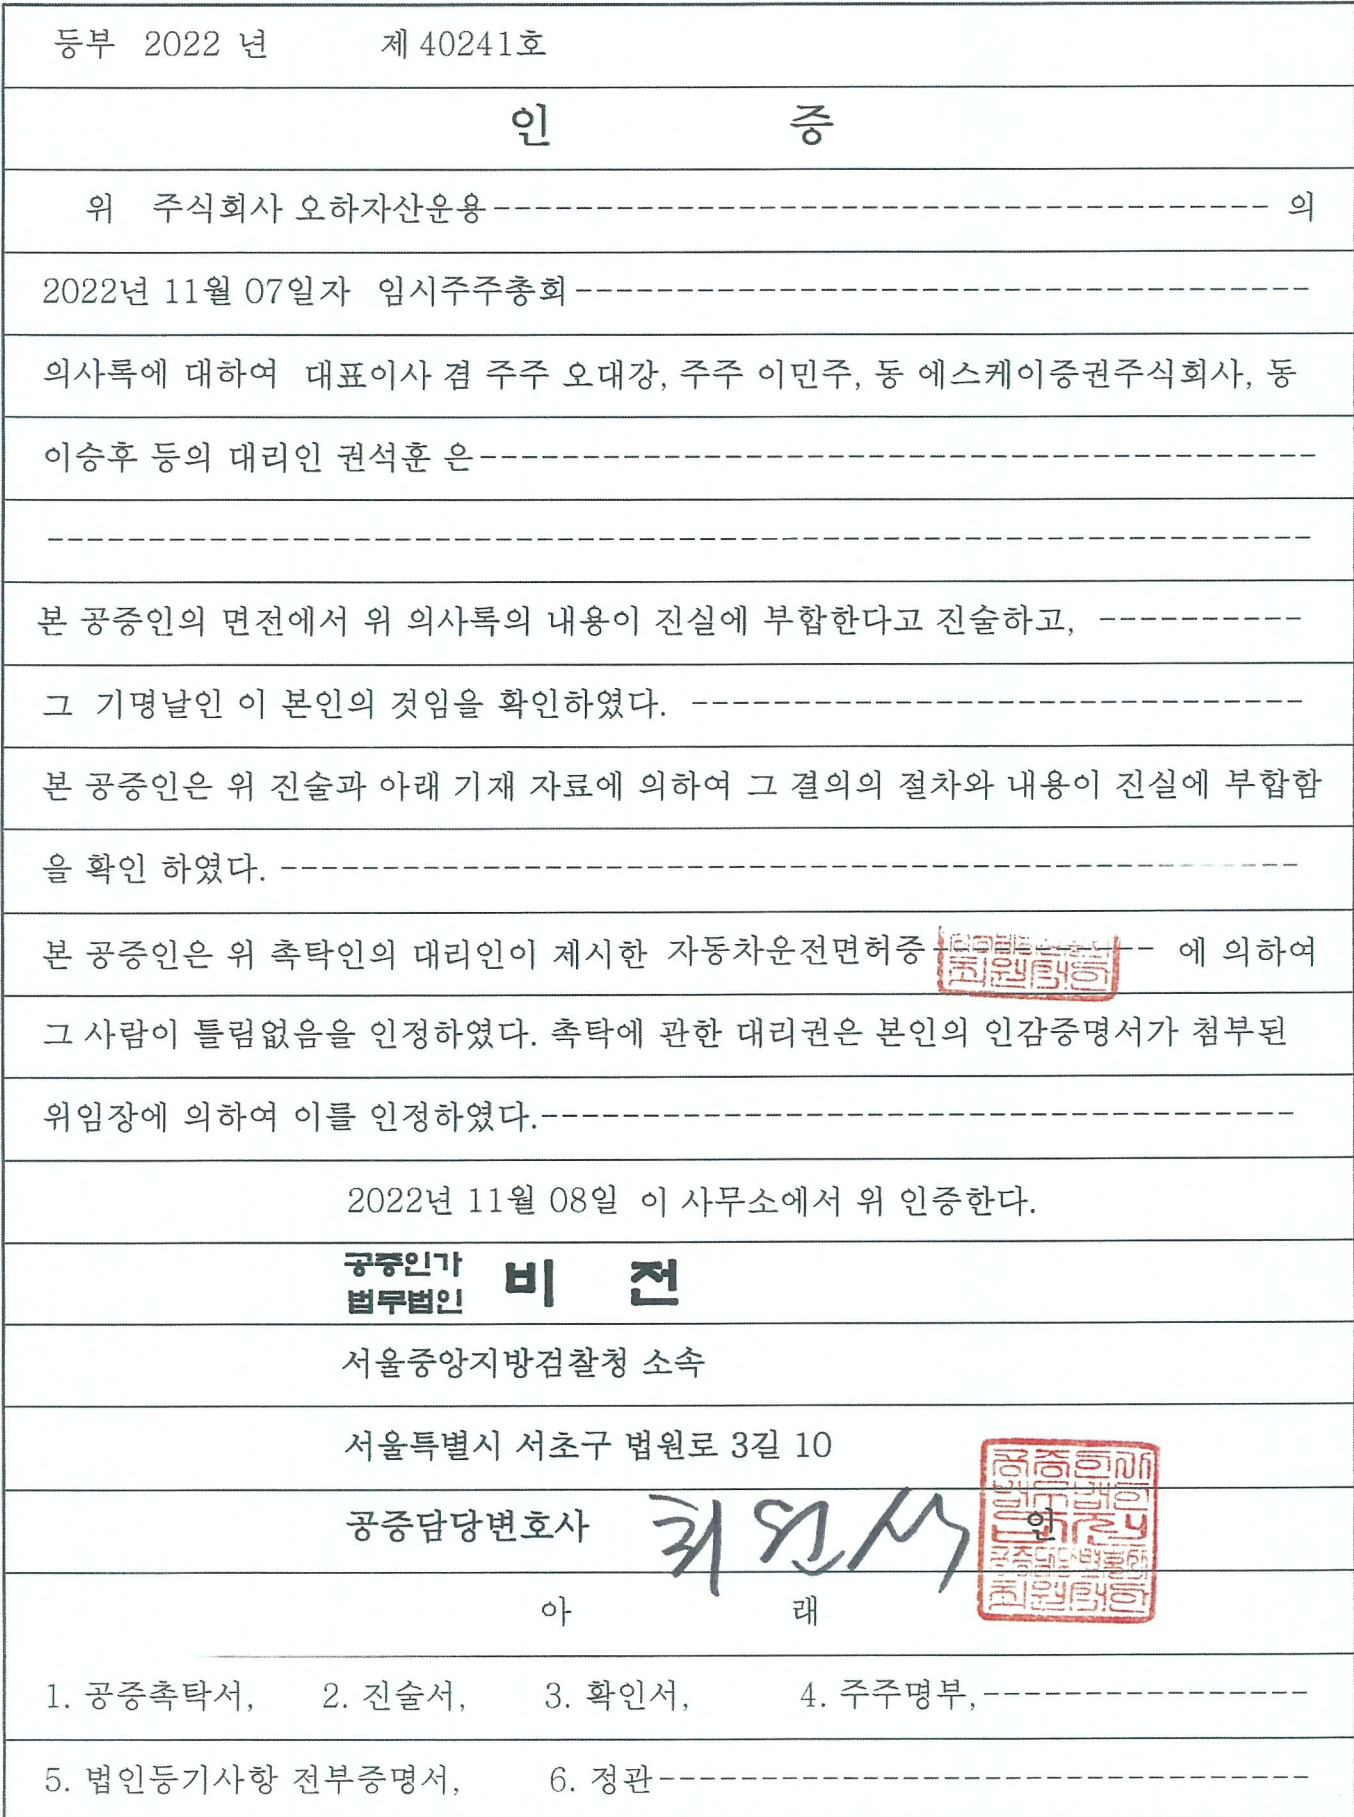 등부 2022 년 제 40241호
인 증
위 주식회사 오하자산운용------------------------------------- 의
2022년 11월 07일자 임시주주총회------------------------------------
의사록에 대하여 대표이사 겸 주주 오대강, 주주 이민주, 동 에스케이증권주식회사, 동
이승후 등의 대리인 권석훈 은----------------------------------------
--------------------------------------------------------------
본 공증인의 면전에서 위 의사록의 내용이 진실에 부합한다고 진술하고, ----------
그 기명날인 이 본인의 것임을 확인하였다. ------------------------------
본 공증인은 위 진술과 아래 기재 자료에 의하여 그 결의의 절차와 내용이 진실에 부합함
을 확인 하였다. --------------------------------------------------
본 공증인은 위 촉탁인의 대리인이 제시한 자동차운전면허증----------- 에 의하여
그 사람이 틀림없음을 인정하였다. 촉탁에 관한 대리권은 본인의 인감증명서가 첨부된
위임장에 의하여 이를 인정하였다.-------------------------------------
2022년 11월 08일 이 사무소에서 위 인증한다.
공증인가
법무법인 비 전
서울중앙지방검찰청 소속
서울특별시 서초구 법원로 3길 10
공증담당변호사 최원석 인
아 래
1. 공증촉탁서, 2. 진술서, 3. 확인서, 4. 주주명부,----------------
5. 법인등기사항 전부증명서, 6. 정관--------------------------------